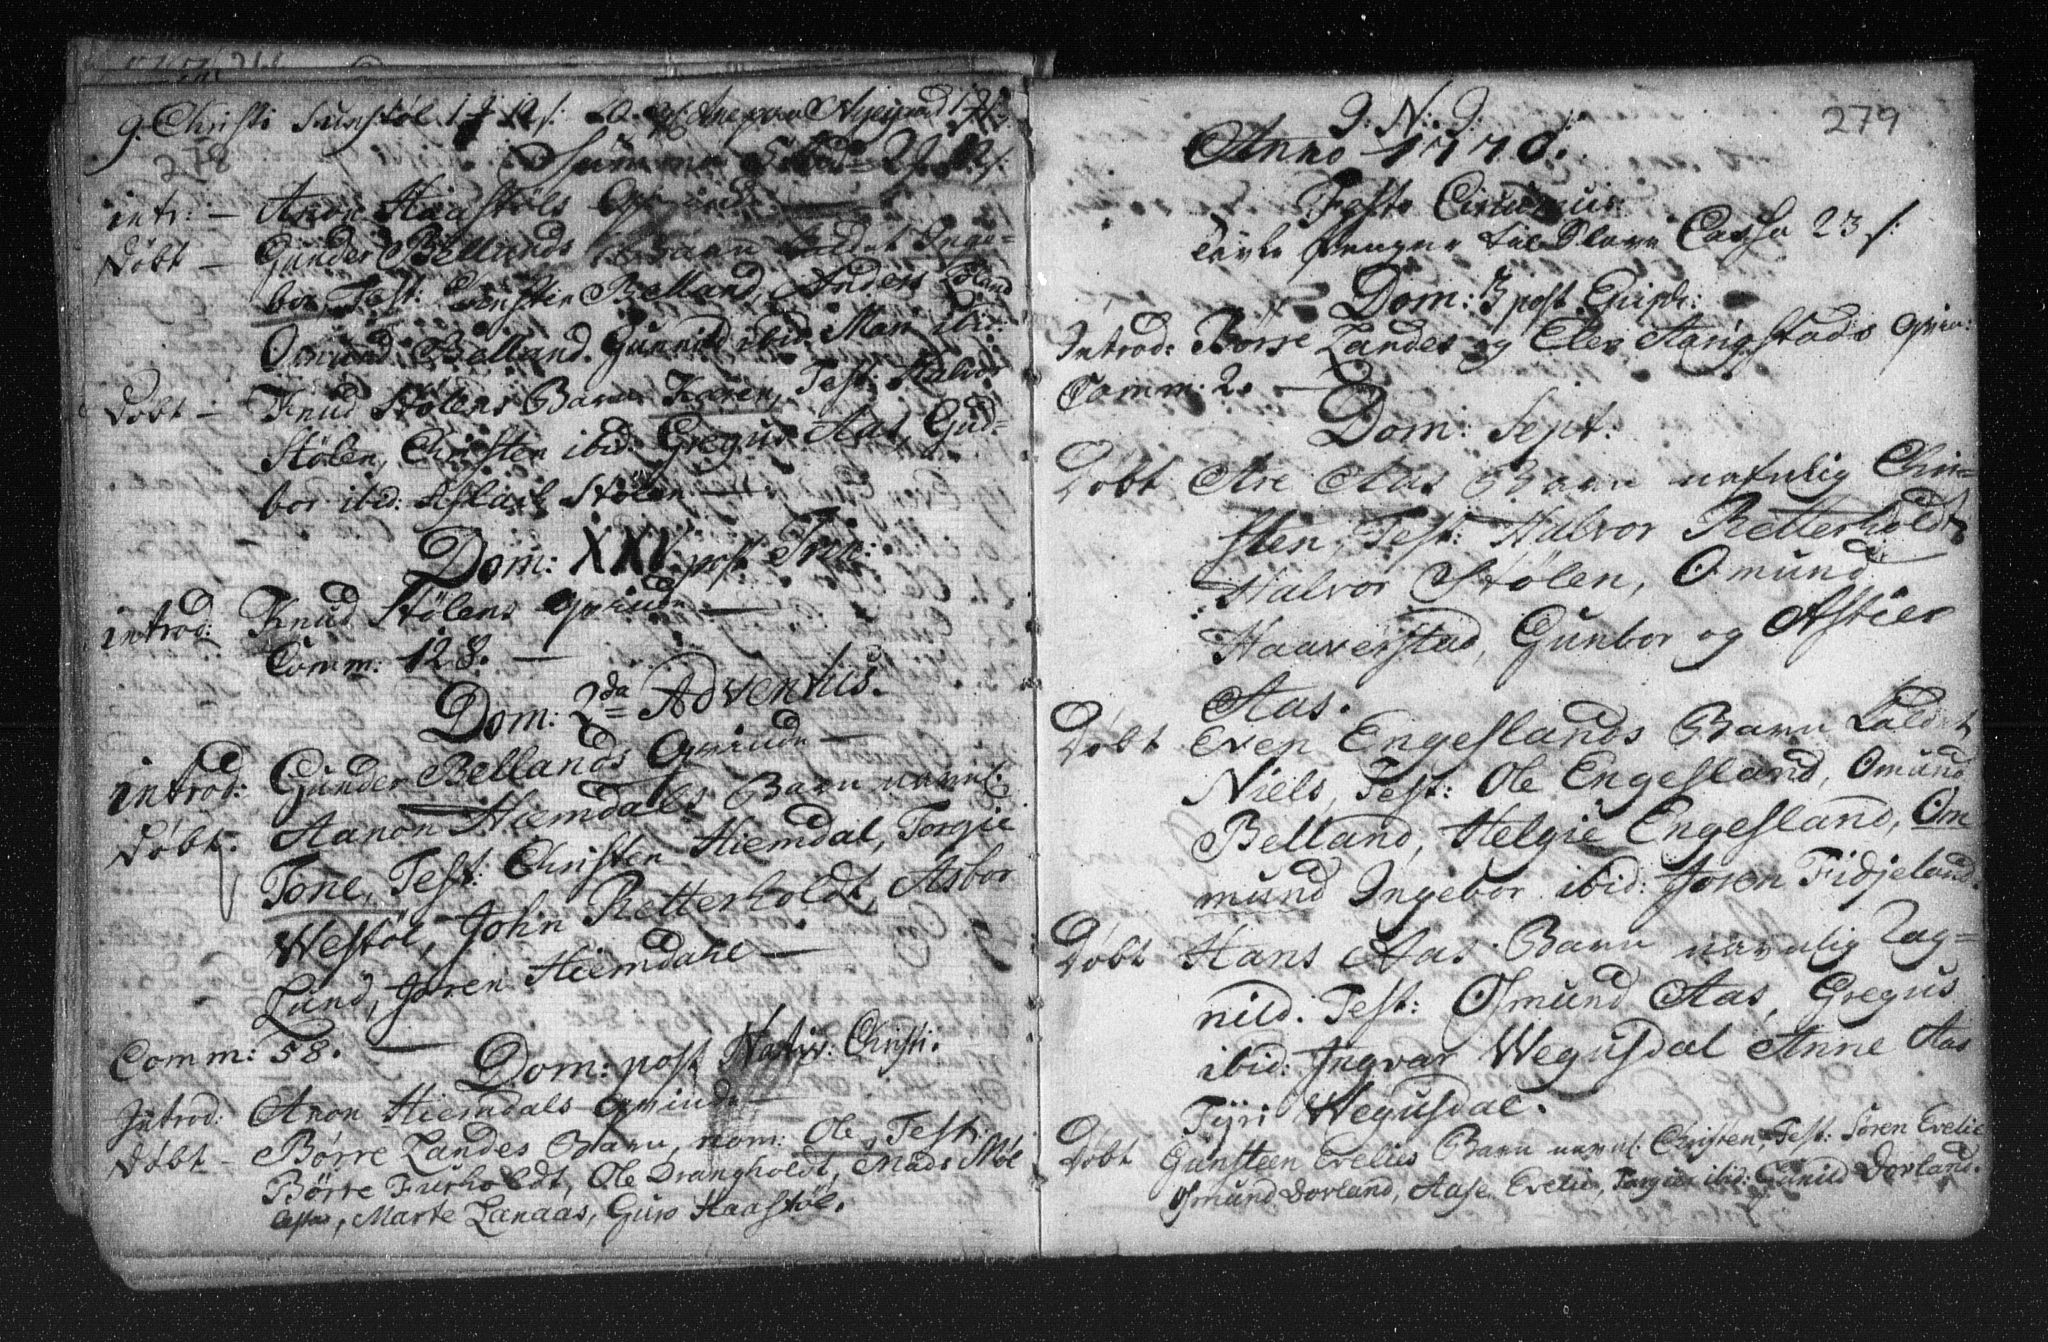 9. Christi
278
Summa
intr: — Anon Haastøls Qvinde —
Døbt — Gunder Bellands Barn kaldet Inge=
bor, Test: Torsten Belland, Anders
Omund Belland. Gunnild ibid: Mari ibid:
Døbt — Knud Stølens Barn Karen, Test: Halvor
Stølen, Christen ibid: Gregus Aas, Gud=
bor ibid: Aslach Stølen —
Dom: XXV post Trin:
introd: Knud Stølens Qvinde —
Comm: 128. —
Dom: 2da Adventus.
introd: Gunder Bellands Qvinde —
Døbt. Aanon Hiemdals Barn navnl:
Tone, Test: Christen Hiemdal, Torgie
Westøl, John Retterholdt, Asbor
Lund, Joren Hiemdahl —
Comm: 58. —
Dom: post Nativ: Christi.
Introd: Anon Hiemdals Qvinde —
Døbt — Børre Landes Barn, nom: Ole, Test:
Børre Furholdt, Ole Drangholdt, Mads Møl
Marte Lanaas, Guro Haastøl.
279
J. N. J.
Anno 1770.
Festo Circumcis:
Tavle penger til Cassa 23 s:
Dom: 3 post Epiph:
Introd: Børre Landes og Elev Aanigstads Qvin:
Comm: 2. —
Dom: Sept.
Døbt Are Aas Barn nafnlig Chri=
sten, Test: Halvor Retterholdt,
Halvor Stølen, Omund
Haaverstad, Gunbor og Astier
Aas.
Døbt Even Engeslands Barn kaldet
Niels, Test: Ole Engesland, Omund
Belland, Helgie Engesland, Om
mund Ingebor ibid: Joren Fidjeland.
Døbt Hans Aas Barn navnlig Rag=
nild. Test: Osmund Aas, Gregus
ibid: Ingvar Wegusdal Anne Aas
Tyri Wegusdal.
Døbt Gunsteen Evelies Barn navnl: Christen, Test: Søren Evelie
Osmund Dovland, Aase Evelie, Torgier ibid: Gunild Dovland.